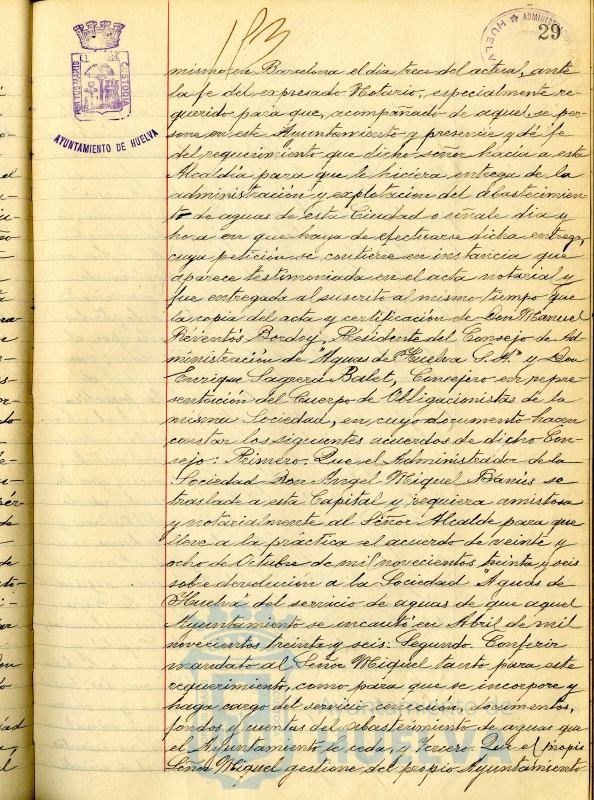 183
29
ADMINISTRACION
HUELVA
PORTUS MARIS
CUSTODIA
AYUNTAMIENTO DE HUELVA
mismo en Barcelona el dia trece del actual, ante
la fe del expresado Notario, especialmente re-
querido para que, acompañado de aquel, se per-
sone en este Ayuntamiento y presencie y dé fe
del requerimiento que dicho señor hacia a esta
Alcaldia para que le hiciera entrega de la
administración y explotacion del abastecimien-
to de aguas de esta Ciudad o señale dia y
hora en que haya de efectuarse dicha entrega,
cuya petición se contiene en instancia que
aparece testimoniada en el acta notarial y
fue entregada al suscrito al mismo tiempo que
la copia del acta y certificación de Don Manuel
Reventós Bordoy, Presidente del Consejo de Ad-
ministración de "Aguas de Huelva S.A." y Don
Enrique Sagrera Balet, Consejero en repre-
sentación del Cuerpo de Obligacionistas de la
misma Sociedad, en cuyo documento hacen
constar los siguientes acuerdos de dicho Con-
sejo: Primero. Que el Administrador de la
Sociedad Don Angel Miguel Baniés se
traslade a esta Capital y requiera amistosa
y notarialmente al Señor Alcalde para que
lleve a la práctica el acuerdo de veinte y
ocho de Octubre de mil novecientos treinta y seis
sobre devolución a la Sociedad "Aguas de
Huelva" del servicio de aguas de que aquel
Ayuntamiento se incautó en Abril de mil
novecientos treinta y seis: Segundo. Conferir
mandato al Señor Miguel tanto para este
requerimiento, como para que se incorpore y
haga cargo del servicio, concesión, documentos,
fondos y cuentas del abastecimiento de aguas que
el Ayuntamiento le ceda, y Tercero. Que el propio
Señor Miguel gestione del propio Ayuntamiento
HUELVA